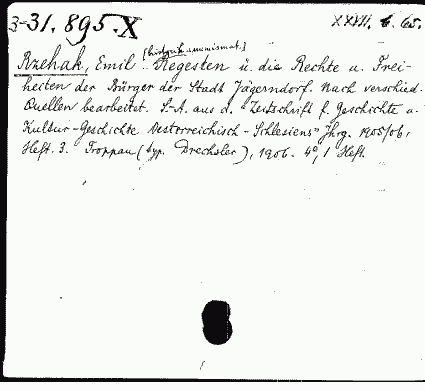 3-31.895.X
XXVII. 6. 65.
[historik. u. numismat.]
Rzehak, Emil: Regesten ü. die Rechte u. Frei-
heiten der Bürger der Stadt Jägerndorf. Nach verschied.
Quellen bearbeitet. S.-A. aus d. "Zeitschrift f. Geschichte u.
Kultur-Geschichte Oesterreichisch-Schlesiens" Jhrg. 1905/06,
Heft. 3. Troppau (typ. Drechsler), 1906. 4°, 1 Heft.